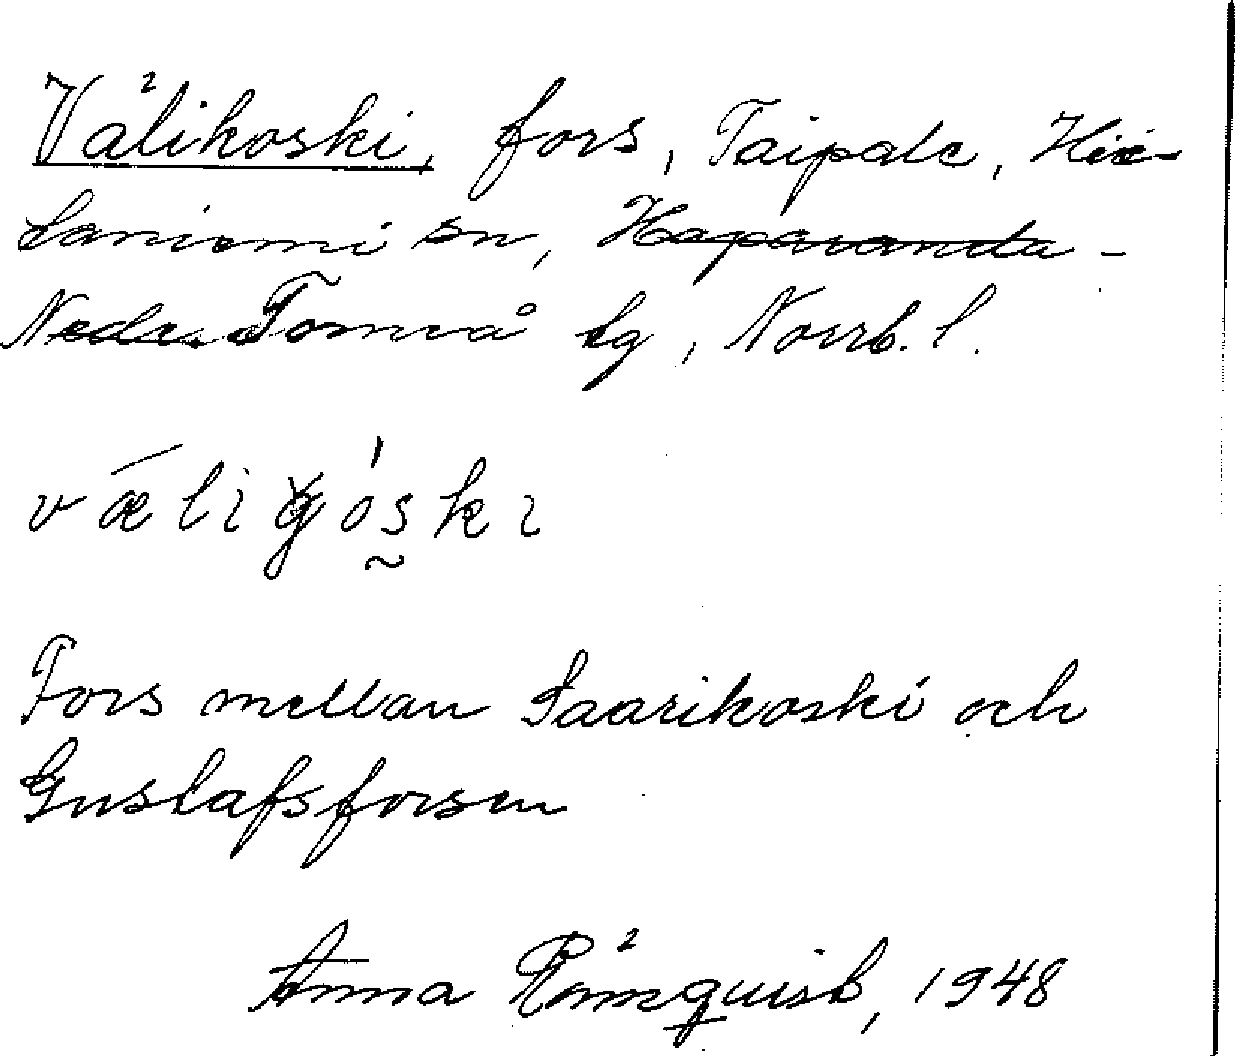 Välikoski, fors, Taipale, Hie-
taniemi sn, Haparanda-
Neder Torneå tg, Norrb. l.
væ̅liǥo̍s̰ki
Fors mellan Saarikoski och
Gustafsforsen
Anna Rönnquist, 1948